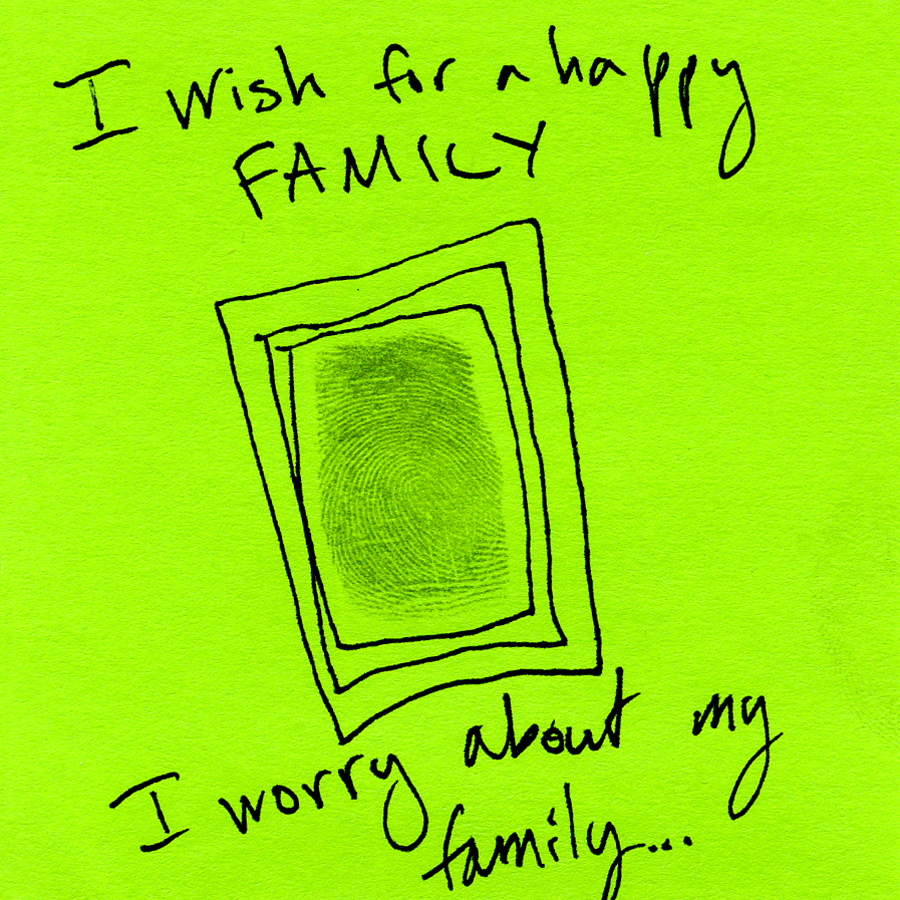 I wish for a happy
FAMILY
I worry about my
family...